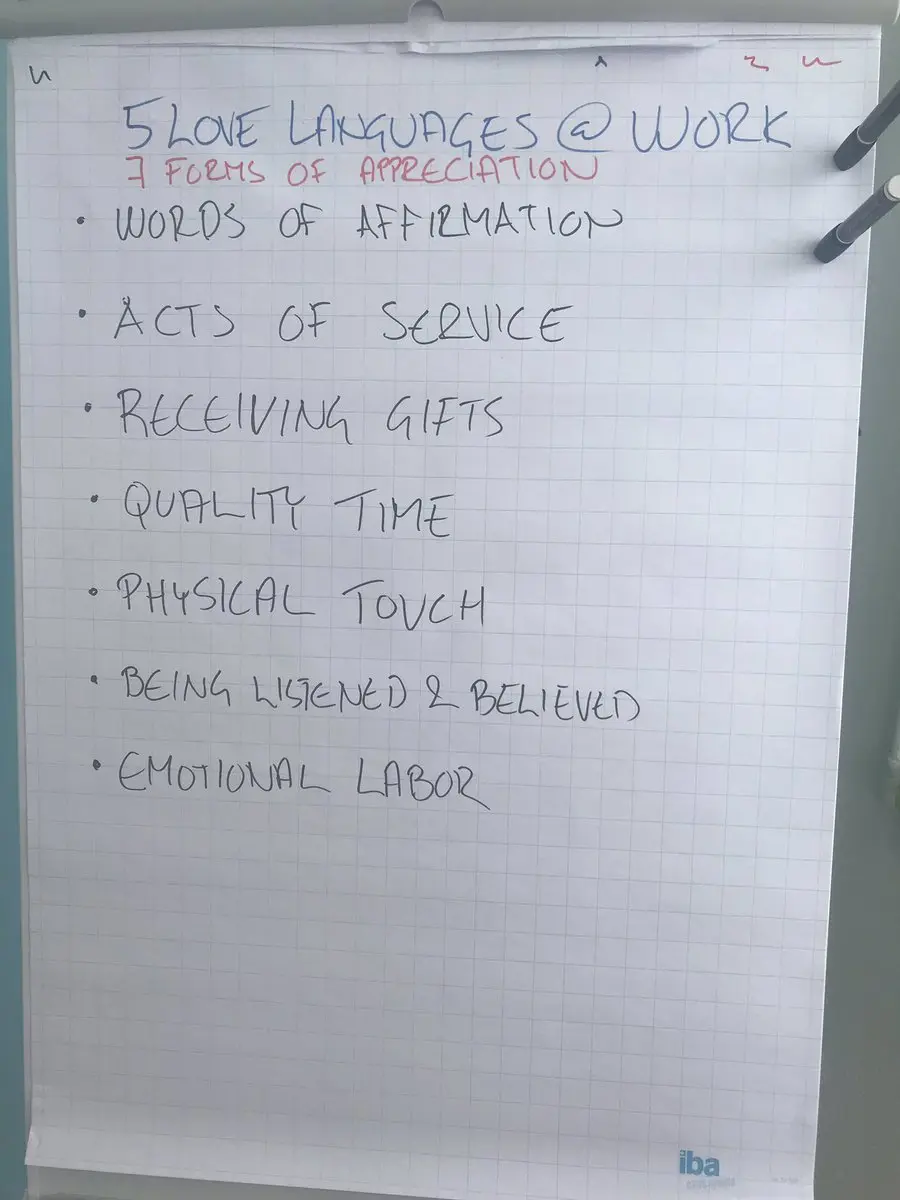 5 LOVE LANGUAGES @ WORK
7 FORMS OF APPRECIATION
• WORDS OF AFFIRMATION
• ACTS OF SERVICE
• RECEIVING GIFTS
• QUALITY TIME
• PHYSICAL TOUCH
• BEING LISTENED & BELIEVED
• EMOTIONAL LABOR
iba